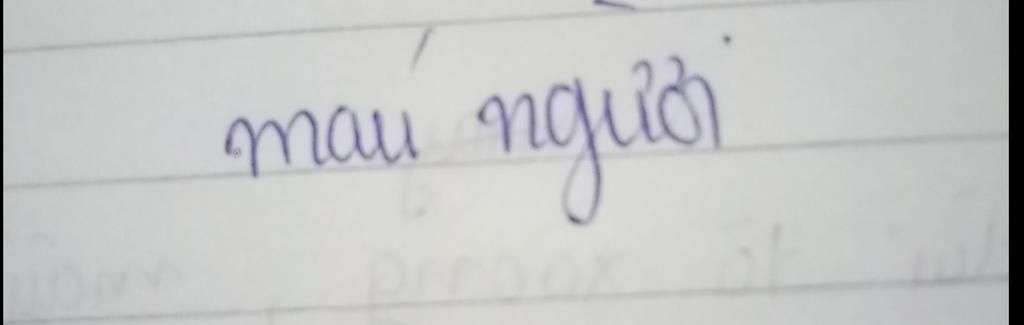 máu người